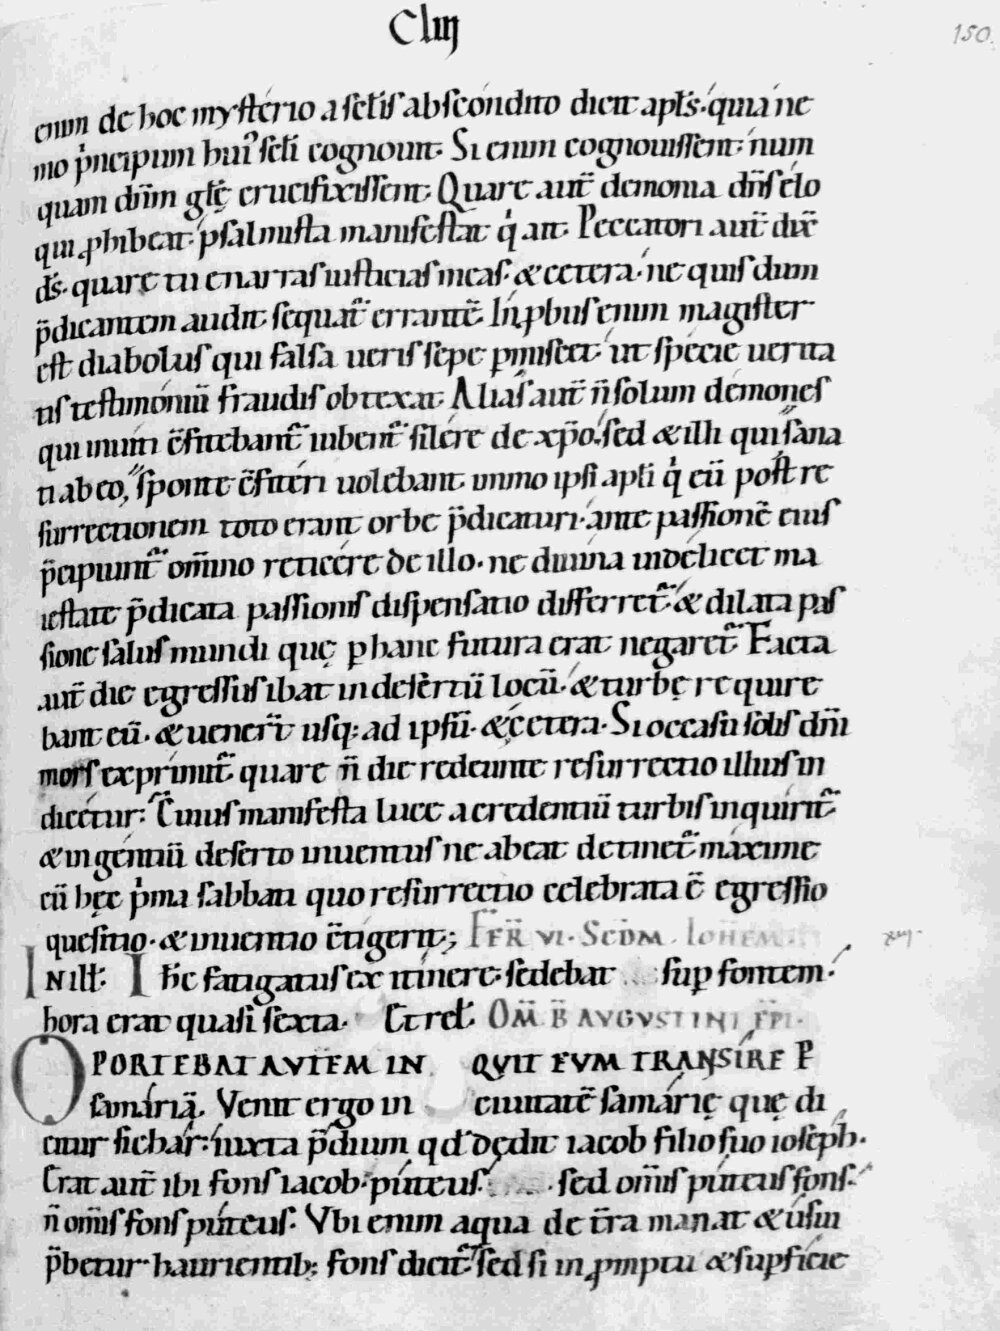 Cliij
150.
enim de hoc mysterio a sc̄l̄is abscondito dicit apl̄s. quia ne
mo p̍ncipum hui᾽ sc̄l̄i cognouit. Si enim cognouissent. num
quam dn̄m gl̄ę crucifixissent. Quare aut̄ demonia dn̄s elo
qui ꝓhibeat. psalmista manifestat q̍ ait. Peccatori aut̄ dix̄
d̄s. quare tu enarras iusticias meas. & cetera. ne quis dum
p̄dicantem audit. sequat᷑ errantē. Inꝓbus enim magister
est diabolus qui falsa ueris sepe ꝑmiscet. ut specie uerita
tis testimoniū fraudis obtexat. Alias aut̄ n̄ solum demones
qui inuiti c̄fitebant᷑ iubent᷑ silere de xp̄o. sed & illi qui sana
ti ab eo, sponte c̄fiteri uolebant. immo ipsi apl̄i q̍ eū post re
surrectionem toto erant orbe p̄dicaturi. ante passionē eius
p̄cipiunt᷑ om̄ino reticere de illo. ne diuina uidelicet ma
iestate p̄dicata passionis dispensatio differret᷑. & dilata pas
sione salus mundi quę ꝑ hanc futura erat negaret᷑. Facta
aut̄ die egressus ibat in desertū locū. & turbę require
bant eū. & uener̄t usq; ad ipsū. & cetera. Si occasu solis dn̄i
mors exprimit᷑ quare n̄ die redeunte resurrectio illius in
dicetur. Cuius manifesta luce a credentiū turbis inquirit᷑
& in gentiū deserto inuentus ne abeat detinet᷑. maxime
cū hęc p̍ma sabbati quo resurrectio celebrata ē egressio
quesitio. & inuentio c̄tigerit; FER̄ VI. SCD̄M. IOHEM.
IN ill̄. Ih̄c fatigatus ex itinere. sedebat sup fontem.
hora erat quasi sexta. Et rel̄. OM̄ B̄ AVGVSTINI EP̄I.
OPORTEBAT AVTEM INQVIT EVM TRANSIRE P
samariā. Venit ergo in ciuitatē samarię quę di
citur sichar. iuxta p̄dium qd̄ dedit iacob filio suo ioseph.
Erat aut̄ ibi fons iacob. puteus. sed om̄is puteus fons.
n̄ om̄is fons puteus. Vbi enim aqua de t̄ra manat & usui
p̄betur haurientib; fons dicit᷑. sed si in ꝓmptu & supficie